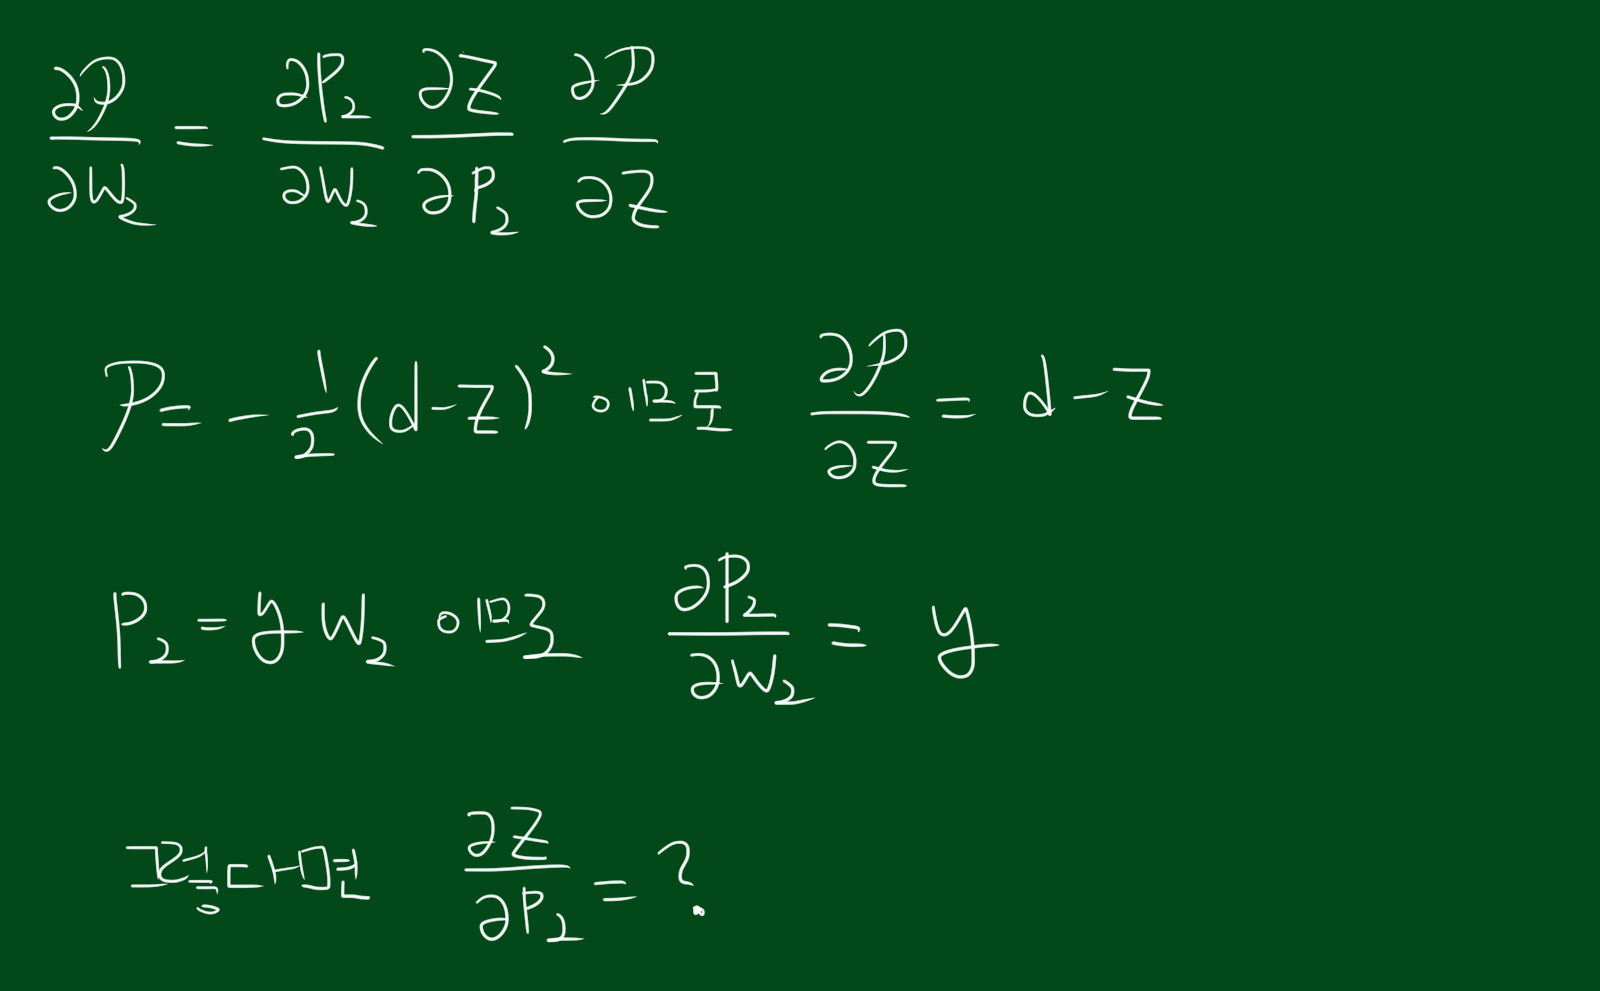 ∂P/∂W₂ = ∂P₂/∂W₂ ∂Z/∂P₂ ∂P/∂Z
P = -1/2(d-z)² 이므로 ∂P/∂Z = d-z
P₂ = y W₂ 이므로 ∂P₂/∂W₂ = y
그렇다면 ∂Z/∂P₂ = ?